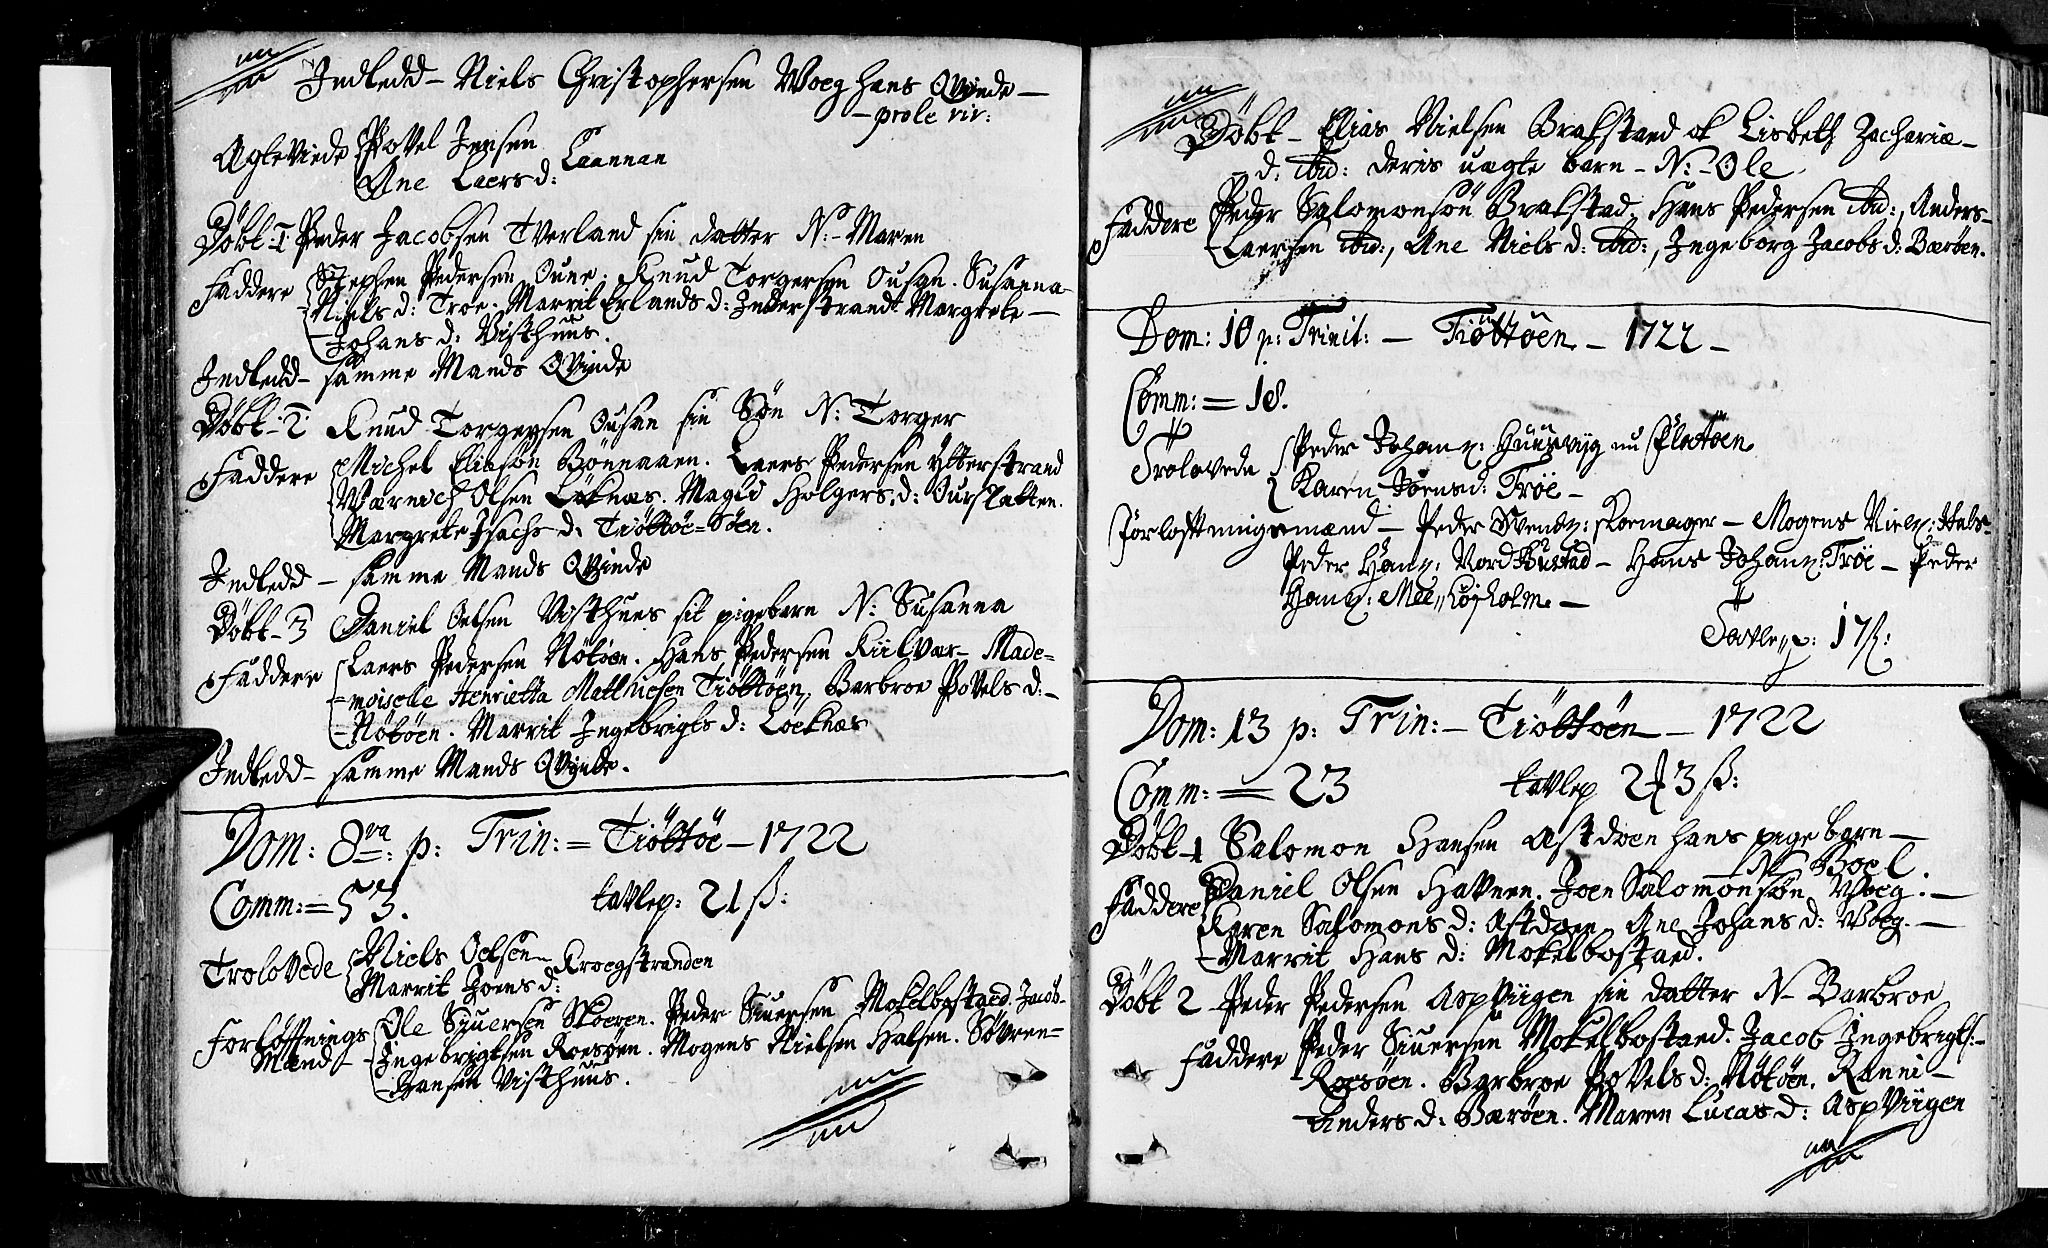 Indledd – Niels Christophersen Woeg hans Qvinde –
– prole vir:
Ægteviede Povel Jensen
Ane Laersd: Caannan
Döbt: 1 Peder Jacobsen Tverland sin datter N: – Maren
Faddere Stephen Pedersen Oune. Knud Torgersen Ousan. Susanna
Niels d: Troe. Marrit Erlands d: Inderstrand. Margrete –
– Johans d: Visthuus.
Indledd – samme Mands Qvinde
Döbt – 2 Knud Torgersen Ousan sin Sön N: Torger
Faddere Michel Eliasön Bönnaaen. Laers Pedersen Ytterstrand
Wærnich Olsen Löknæs. Magli Holgers d: Ourflatten.
Margrete Isachs d: Tiöttöe=Söen.
Indledd – samme Mands Qvinde
Döbt – 3 Daniel Oelsen Visthuus sit pigebarn N: Susanna
Faddere Laers Pedersen Nötöen. Hans Pedersen Kiilvær – Made=
=moiselle Henrietta Matthiesen Tiöttöen, Barbroe Povels d: –
– Nötöen. Marrit Ingebrigts d: Löcknæs
Indledd – samme Mands Qvinde.
Dom: 8va: p: Trin: = Tiöttöe – 1722
Comm: = 53. tavlep: 21 ß:
Trolovede Niels Oelsen
Marrit Joens d: Kroegstranden
Forlöffnings Ole Siuersen Skoeren. Peder Siuersen Mokelbostaed. Jacob
Mænd – Ingebrigtsen Roesöen. Mogens Nielsen Halsen. Sövren=
– Hansen Visthuus.
Döbt – Elias Nielsen Brakstaed ok Lisbeth Zachariæ –
– d: ibid: deris uægte barn – N: – Ole
Faddere Peder Salomonsön Brakstad, Hans Pedersen ibid:, Anders –
– Laersen ibid:, Ane Niels d: ibid:, Ingeborg Jacobs d: Bæröen.
Dom: 10 p: Trinit: – Tiöttöen – 1722 –
Comm: = 18.
Trolovede Peder Johans: Huusvyg nu
Karen Joensd: Tröe –
Forlofftningsmænd – Peder Svends: – Mogens Niels: Hals –
Peder Hans: Nord – Hans Johans: Tröe – Peder
Hans:
Tavle p: 17 ß:
Dom: 13 p: Trin: – Tiöttöen – 1722
Comm: = 23 tavlep 2 3 ß:
Döbt – 1 Salomon Hansen Astdoen hans pige barn –
– N: Boel.
Faddere Daniel Olsen Havnen. Joen Salomonsön Woeg. –
Karen Salomons d: Astdoen Ane Johans d: Woeg. –
– Marrit Hans d: Mokelbostaed.
Döbt 2 – Peder Pedersen Aspviigen sin datter N – Barbroe
Faddere Peder Siuersen Mokelbostaed. Jacob Ingebrigts: –
– Roesöen. Barbroe Povels d: Nötöen. Ranni –
– Anders d: Bæröen. Maren Lucas d: Aspviigen